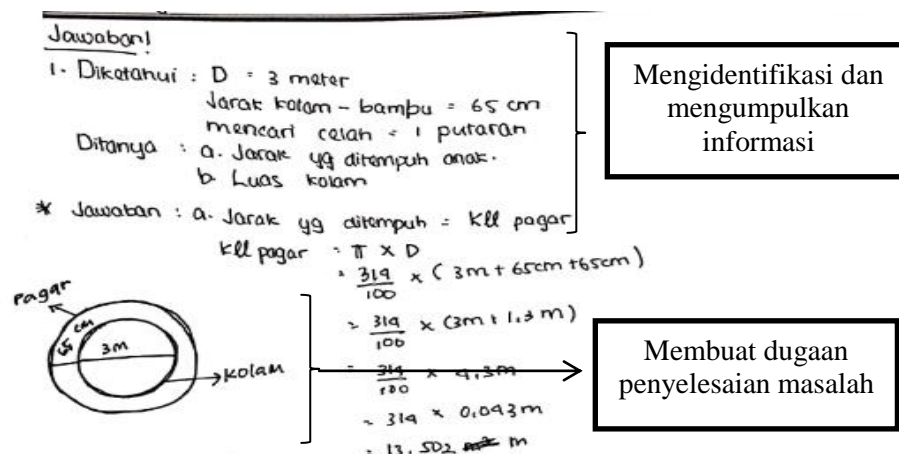 Jawaban!
1. Diketahui : D = 3 meter
Jarak kolam - bambu = 65 cm
mencari celah = 1 putaran
Ditanya : a. Jarak yg ditempuh anak.
b. Luas kolam
* Jawaban : a. Jarak yg ditempuh = Kll pagar
Kll pagar = π x D
= 314/100 x (3m + 65cm + 65cm)
= 314/100 x (3m + 1,3 m)
= 314/100 x 4,3m
= 314 x 0,043m
= 13,502 m
Pagar
65 cm
3m
Kolam
Mengidentifikasi dan
mengumpulkan
informasi
Membuat dugaan
penyelesaian masalah